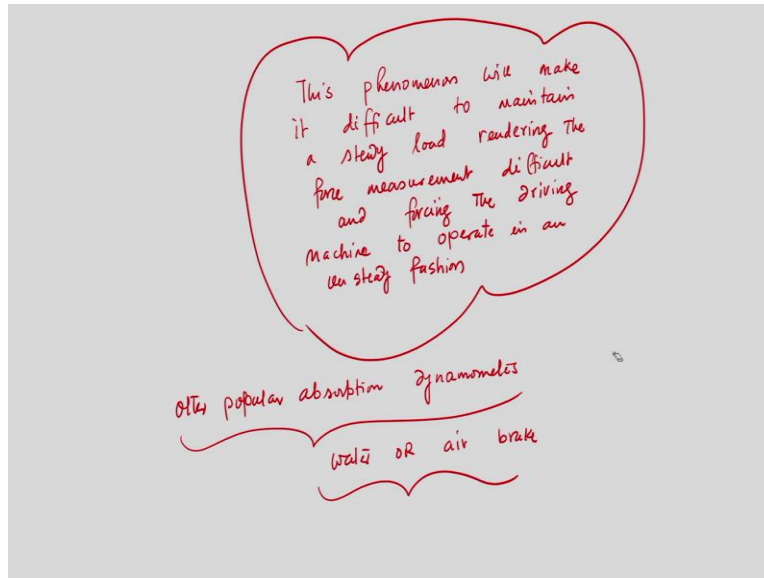 This phenomenon will make
it difficult to maintain
a steady load rendering The
force measurement difficult
and forcing The driving
machine to operate in an
unsteady fashion
other popular absorption dynamometers
water OR air brake